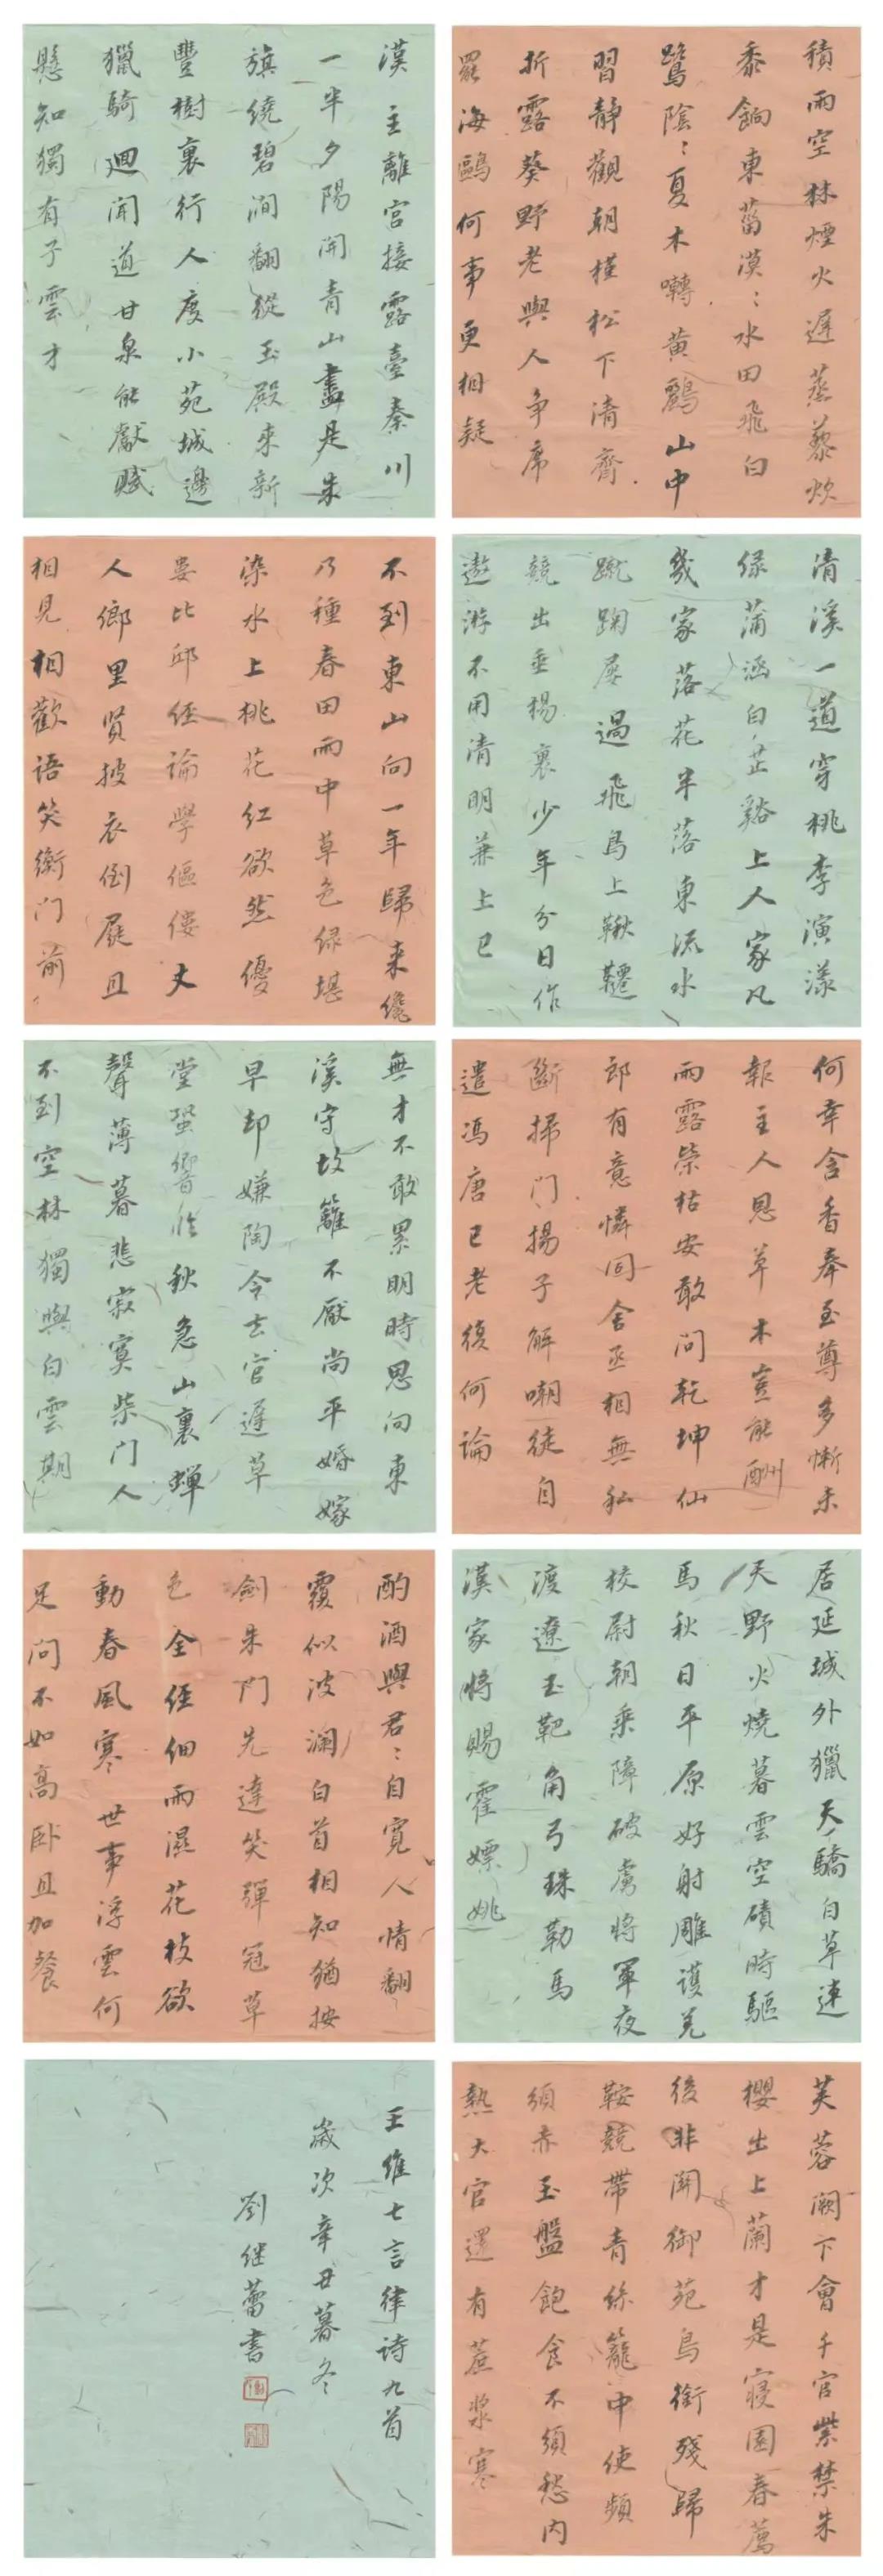 積雨空林煙火遲蒸藜炊
黍餉東菑漠〻水田飛白
鷺陰〻夏木囀黃鸝山中
習靜觀朝槿松下清齋
折露葵野老與人爭席
罷海鷗何事更相疑
漢主離宮接露臺秦川
一半夕陽開青山盡是朱
旗繞碧澗翻從玉殿來新
豐樹裏行人度小苑城邊
獵騎迴聞道甘泉能獻賦
懸知獨有子雲才
清溪一道穿桃李演漾
绿蒲涵白芷谿上人家凡
幾家落花半落東流水
蹴踘屢過飛鳥上鞦韆
競出垂楊裏少年分日作
遨游不用清明兼上巳
不到東山向一年歸来纔
乃種春田雨中草色绿堪
染水上桃花红欲然優
婁比邱经論學傴僂丈
人鄉里賢披衣倒屣且
相見相歡語笑衡門前
何幸含香奉至尊多慚未
報主人恩草木豈能酬
雨露榮枯安敢問乾坤仙
郎有意憐同舍丞相無私
斷掃門揚子解嘲徒自
遣馮唐已老復何論
無才不敢累明時思向東
溪守故籬不厭尚平婚嫁
早却嫌陶令去官遲草
堂蛩響临秋急山裏蟬
聲薄暮悲寂寞柴門人
不到空林獨與白雲期
居延城外獵天驕白草連
天野火燒暮雲空磧時驅
馬秋日平原好射雕護羌
校尉朝乘障破虜將軍夜
渡遼玉靶角弓珠勒馬
漢家將賜霍嫖姚
酌酒與君〻自寬人情翻
覆似波瀾白首相知猶按
劍朱門先達笑彈冠草
色全经细雨濕花枝欲
動春風寒世事浮雲何
足問不如高卧且加餐
芙蓉闕下會千官紫禁朱
櫻出上蘭才是寢園春薦
後非關御苑鳥銜殘歸
鞍競帶青絲籠中使頻
傾赤玉盤飽食不須愁内
熱大官還有蔗漿寒
王維七言律诗九首
歲次辛丑暮冬
劉继蕾書